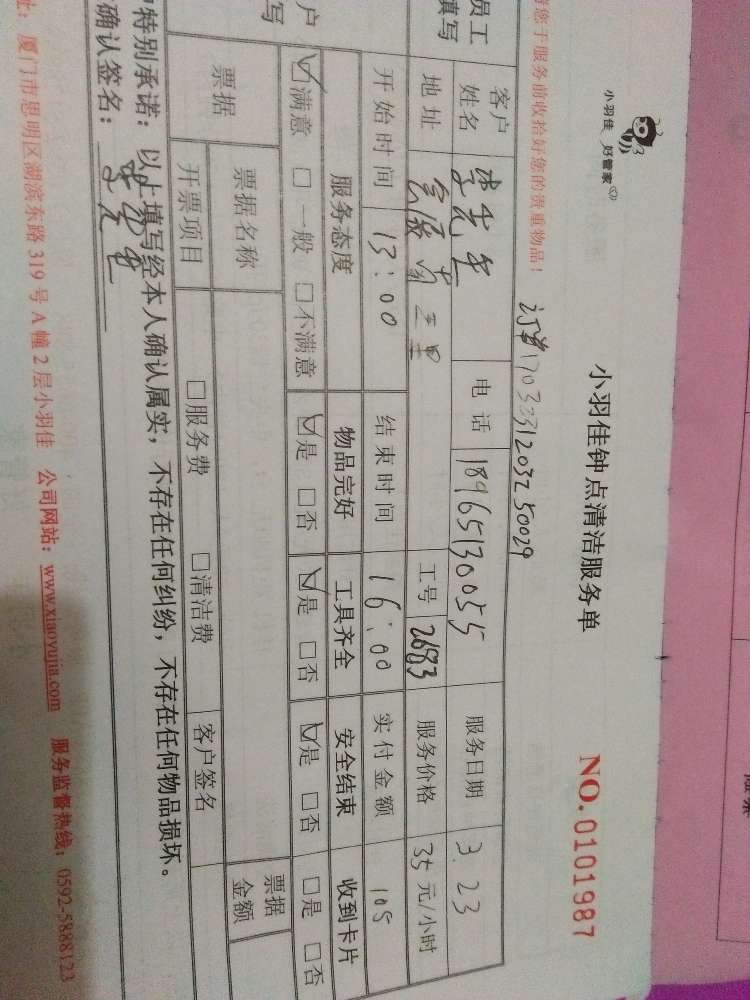 小羽佳 好管家
小羽佳钟点清洁服务单
NO.0101987
您于服务前收拾好您的贵重物品！
订单17033312032 50029
员工填写
客户姓名 李先生 电话 18965130055 服务日期 3.23
地址 南三里 工号 2683 服务价格 35 元/小时
开始时间 13:00 结束时间 16:00 实付金额 105
户写
服务态度 物品完好 工具齐全 安全结束 收到卡片
☑满意 □一般 □不满意 ☑是 □否 ☑是 □否 ☑是 □否 □是 □否
票据 票据名称 票据金额
开票项目 □服务费 □清洁费 客户签名
特别承诺：以上填写经本人确认属实，不存在任何纠纷，不存在任何物品损坏。
确认签名：
址：厦门市思明区湖滨东路 319 号 A 幢 2 层小羽佳 公司网站：www.xiaoyujia.com 服务监督热线：0592-5888123